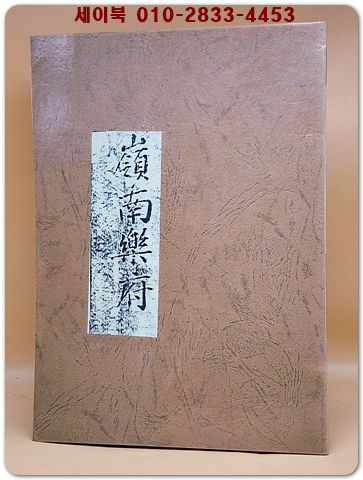 세이북 010-2833-4453
嶺南樂府